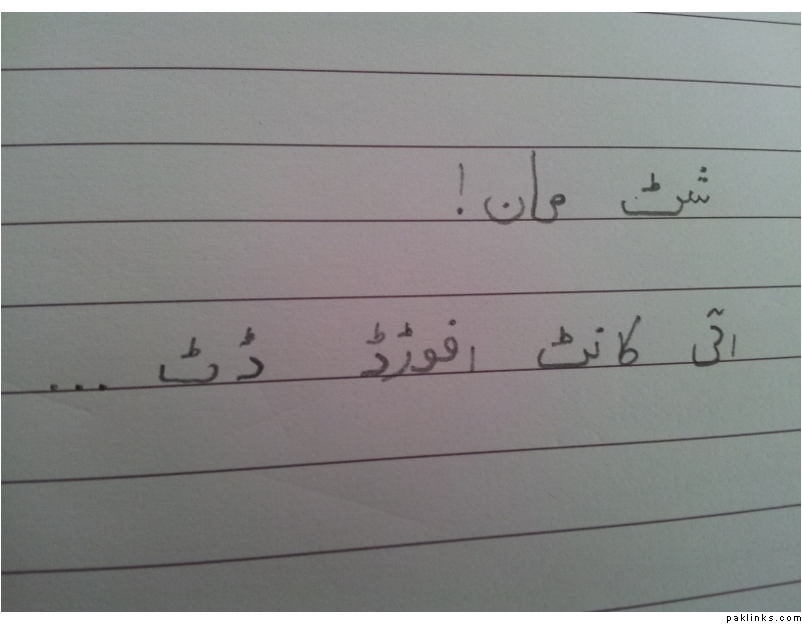 شٹ مان!
ائی کانٹ افورڈ ڈٹ ...
paklinks.com